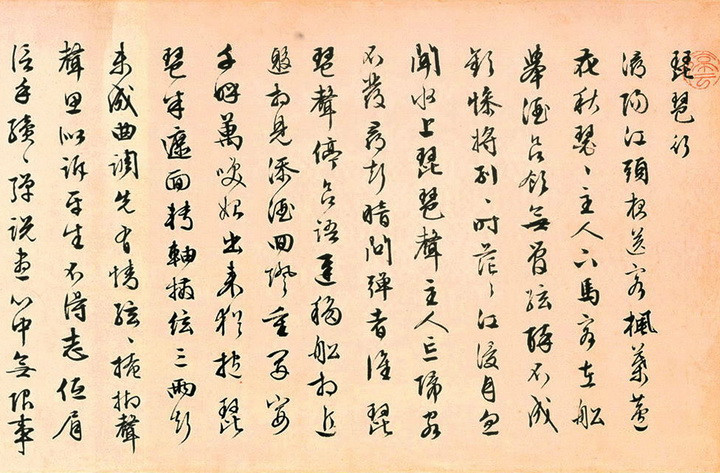 琵琶行
潯陽江頭夜送客楓葉荻
花秋瑟〻主人下馬客在船
舉酒欲飲無管絃醉不成
歡慘將別〻時茫〻江浸月忽
聞水上琵琶聲主人忘歸客
不發尋聲暗問彈者誰琵
琶聲停欲語遲移船相近
邀相見添酒回燈重開宴
千呼萬喚始出來猶抱琵
琶半遮面轉軸撥絃三兩聲
未成曲調先有情絃〻掩抑聲
聲思似訴平生不得志低眉
信手續〻彈說盡心中無限事